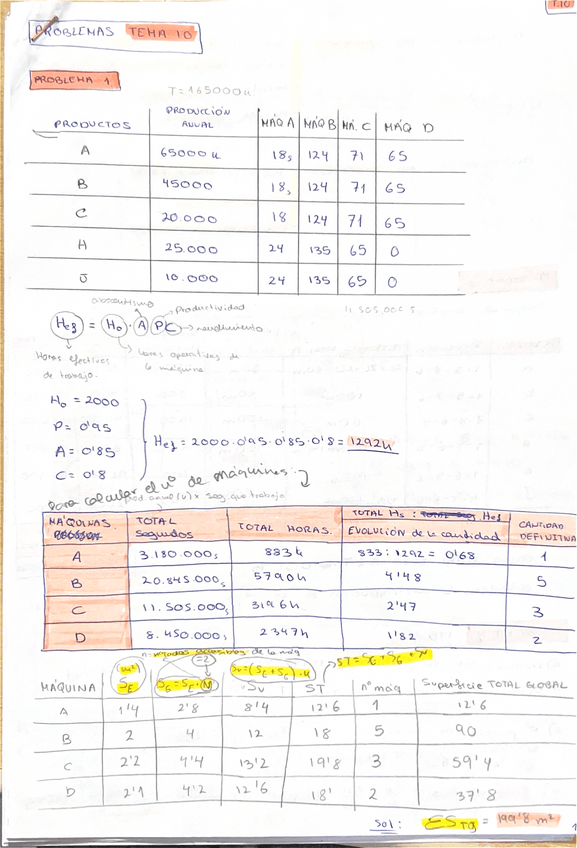 T.10
PROBLEMAS TEMA 10
PROBLEMA 1
T=165000u
PRODUCTOS PRODUCCIÓN ANUAL MÁQ A MÁQ B MÁ. C MÁQ D
A 65000u 18s 124 71 65
B 45000 18s 124 71 65
C 20.000 18 124 71 65
H 25.000 24 135 65 0
J 10.000 24 135 65 0
11.505.000 s
absentismo
Productividad
Hef = Ho · A P C → rendimiento
Horas efectivas de trabajo.
horas operativas de la máquina
Ho = 2000
P = 0'95
A = 0'85
C = 0'8
Hef = 2000·0'95·0'85·0'8 = 1292h
para calcular el nº de máquinas:
prod anual (u) x seg. que trabaja
MÁQUINAS TOTAL Segundos TOTAL HORAS. TOTAL Hs : Hef EVOLUCIÓN de la cantidad CANTIDAD DEFINITIVA
A 3.180.000s 883h 833 : 1292 = 0'68 1
B 20.845.000s 5790h 4'48 5
C 11.505.000s 3196h 2'47 3
D 8.450.000s 2347h 1'82 2
n = nº lados accesibles de la máq
(m²) =2 Sv = (SE + SG) · K ST = SE + SG + SV
MÁQUINA SE SG = SE·(N) SV ST nº máq Superficie TOTAL GLOBAL
A 1'4 2'8 8'4 12'6 1 12'6
B 2 4 12 18 5 90
C 2'2 4'4 13'2 19'8 3 59'4
D 2'1 4'2 12'6 18' 2 37'8
Sol: ΣSTG = 199'8 m²
1